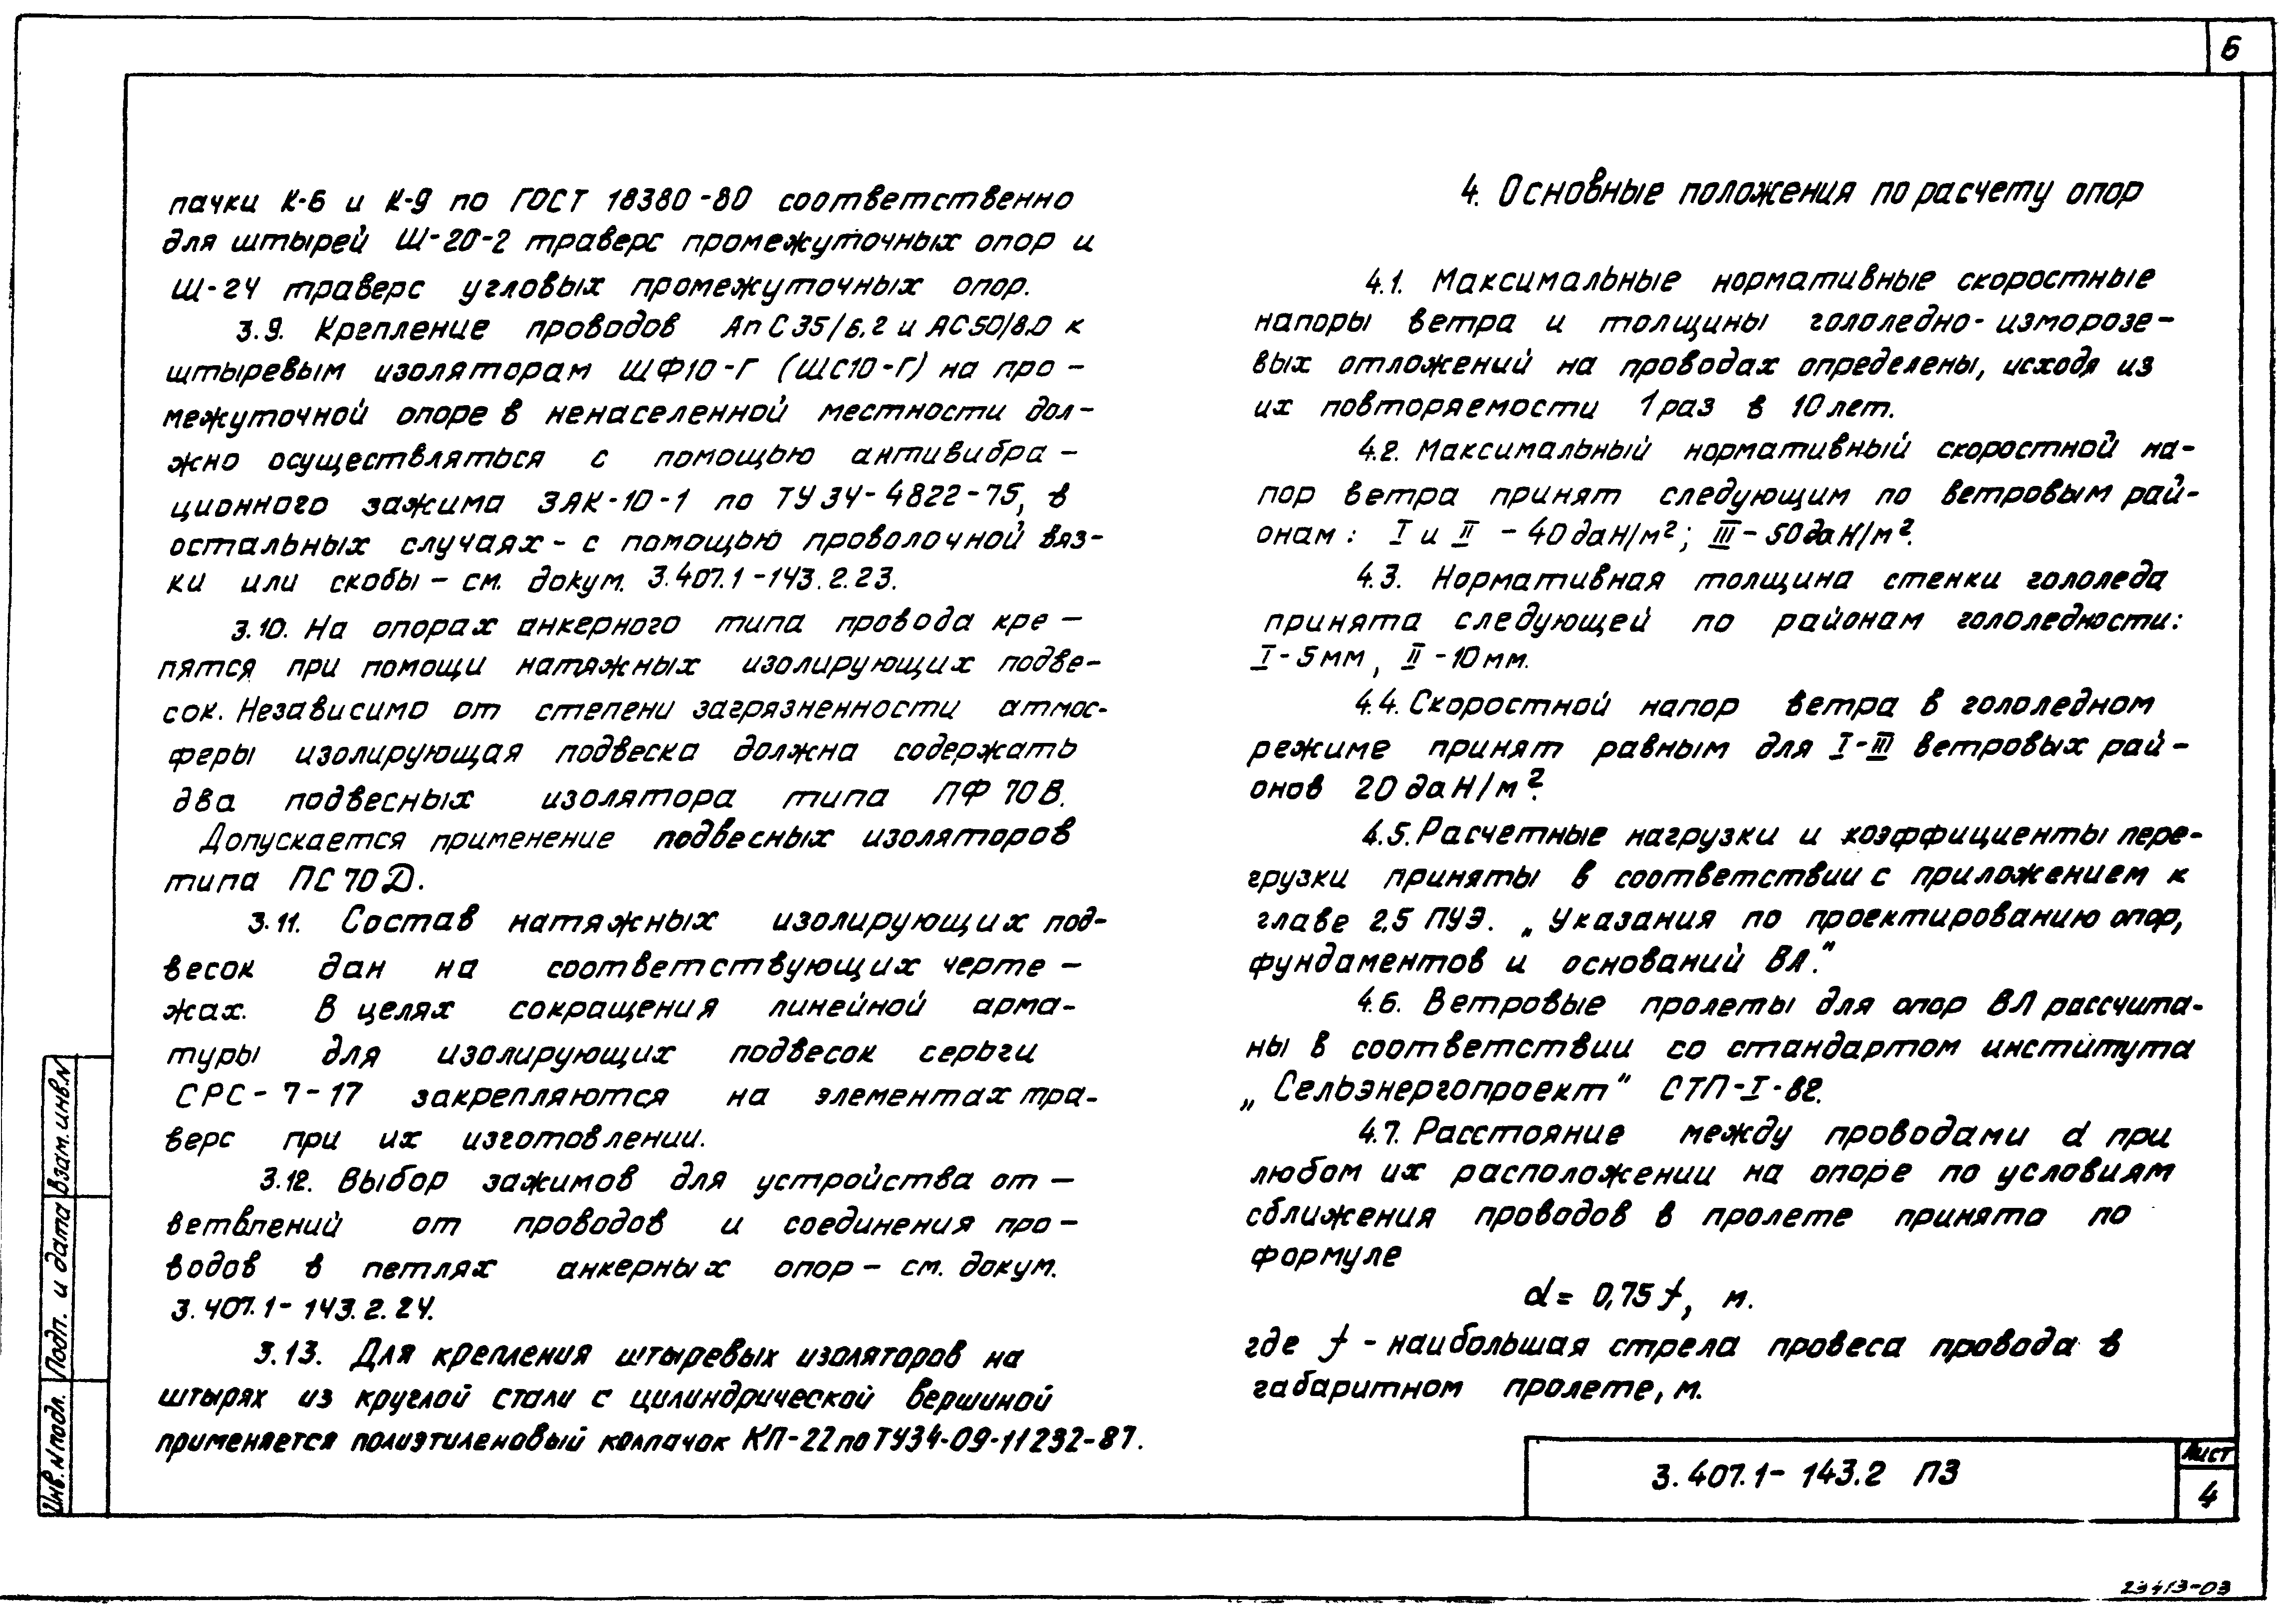 6
пачки К-6 и К-9 по ГОСТ 18380-80 соответственно
для штырей Ш-20-2 траверс промежуточных опор и
Ш-24 траверс угловых промежуточных опор.
3.9. Крепление проводов АпС35/6.2 и АС50/8.0 к
штыревым изоляторам ШФ10-Г (ШС10-Г) на про-
межуточной опоре в ненаселенной местности дол-
жно осуществляться с помощью антивибра-
ционного зажима ЗАК-10-1 по ТУ34-4822-75, в
остальных случаях - с помощью проволочной вяз-
ки или скобы - см. докум. 3.407.1-143.2.23.
3.10. На опорах анкерного типа провода кре-
пятся при помощи натяжных изолирующих подве-
сок. Независимо от степени загрязненности атмос-
феры изолирующая подвеска должна содержать
два подвесных изолятора типа ПФ 70В.
Допускается применение подвесных изоляторов
типа ПС70Д.
3.11. Состав натяжных изолирующих под-
весок дан на соответствующих черте-
жах. В целях сокращения линейной арма-
туры для изолирующих подвесок серьги
СРС-7-17 закрепляются на элементах тра-
верс при их изготовлении.
3.12. Выбор зажимов для устройства от-
ветвлений от проводов и соединения про-
водов в петлях анкерных опор - см. докум.
3.407.1-143.2.24.
3.13. Для крепления штыревых изоляторов на
штырях из круглой стали с цилиндрической вершиной
применяется полиэтиленовый колпачок КП-22 по ТУ34-09-11232-87.
4. Основные положения по расчету опор
4.1. Максимальные нормативные скоростные
напоры ветра и толщины гололедно-изморозе-
вых отложений на проводах определены, исходя из
их повторяемости 1 раз в 10 лет.
4.2. Максимальный нормативный скоростной на-
пор ветра принят следующим по ветровым рай-
онам: I и II - 40 даН/м²; III - 50 даН/м².
4.3. Нормативная толщина стенки гололеда
принята следующей по районам гололедности:
I - 5 мм, II - 10 мм.
4.4. Скоростной напор ветра в гололедном
режиме принят равным для I-III ветровых рай-
онов 20 даН/м².
4.5. Расчетные нагрузки и коэффициенты пере-
грузки приняты в соответствии с приложением к
главе 2,5 ПУЭ. „Указания по проектированию опор,
фундаментов и оснований ВЛ."
4.6. Ветровые пролеты для опор ВЛ рассчита-
ны в соответствии со стандартом института
„Сельэнергопроект" СТП-I-82.
4.7. Расстояние между проводами d при
любом их расположении на опоре по условиям
сближения проводов в пролете принята по
формуле
d = 0,75 f, м.
где f - наибольшая стрела провеса провода в
габаритном пролете, м.
Инв. N подл. Подп. и дата Взам. инв. N
3.407.1-143.2 ПЗ
Лист
4
23413-03